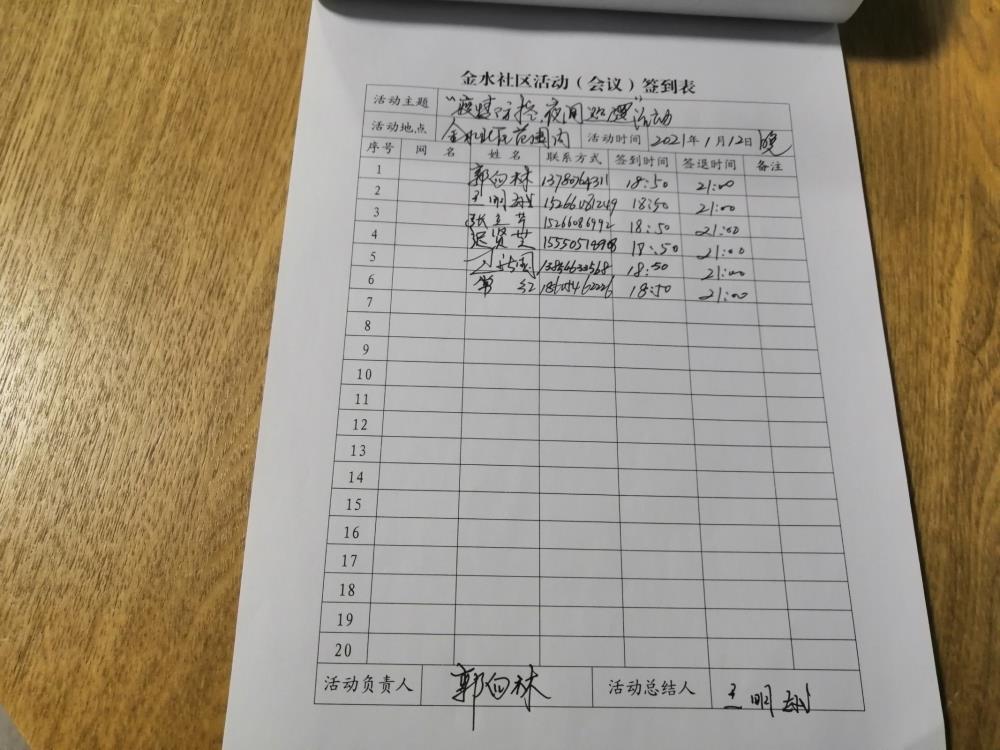 金水社区活动（会议）签到表
活动主题 "疫情防控,夜间巡逻"活动
活动地点 金水社区范围内 活动时间 2021年1月12日晚
序号 网名 姓名 联系方式 签到时间 签退时间 备注
1 郭向林 18:50 21:00
2 王明 18:50 21:00
3 张立芹 15266086992 18:50 21:00
4 贤芝 18:50 21:00
5 18:50 21:00
6 红 18:50 21:00
7
8
9
10
11
12
13
14
15
16
17
18
19
20
活动负责人 郭向林 活动总结人 王明